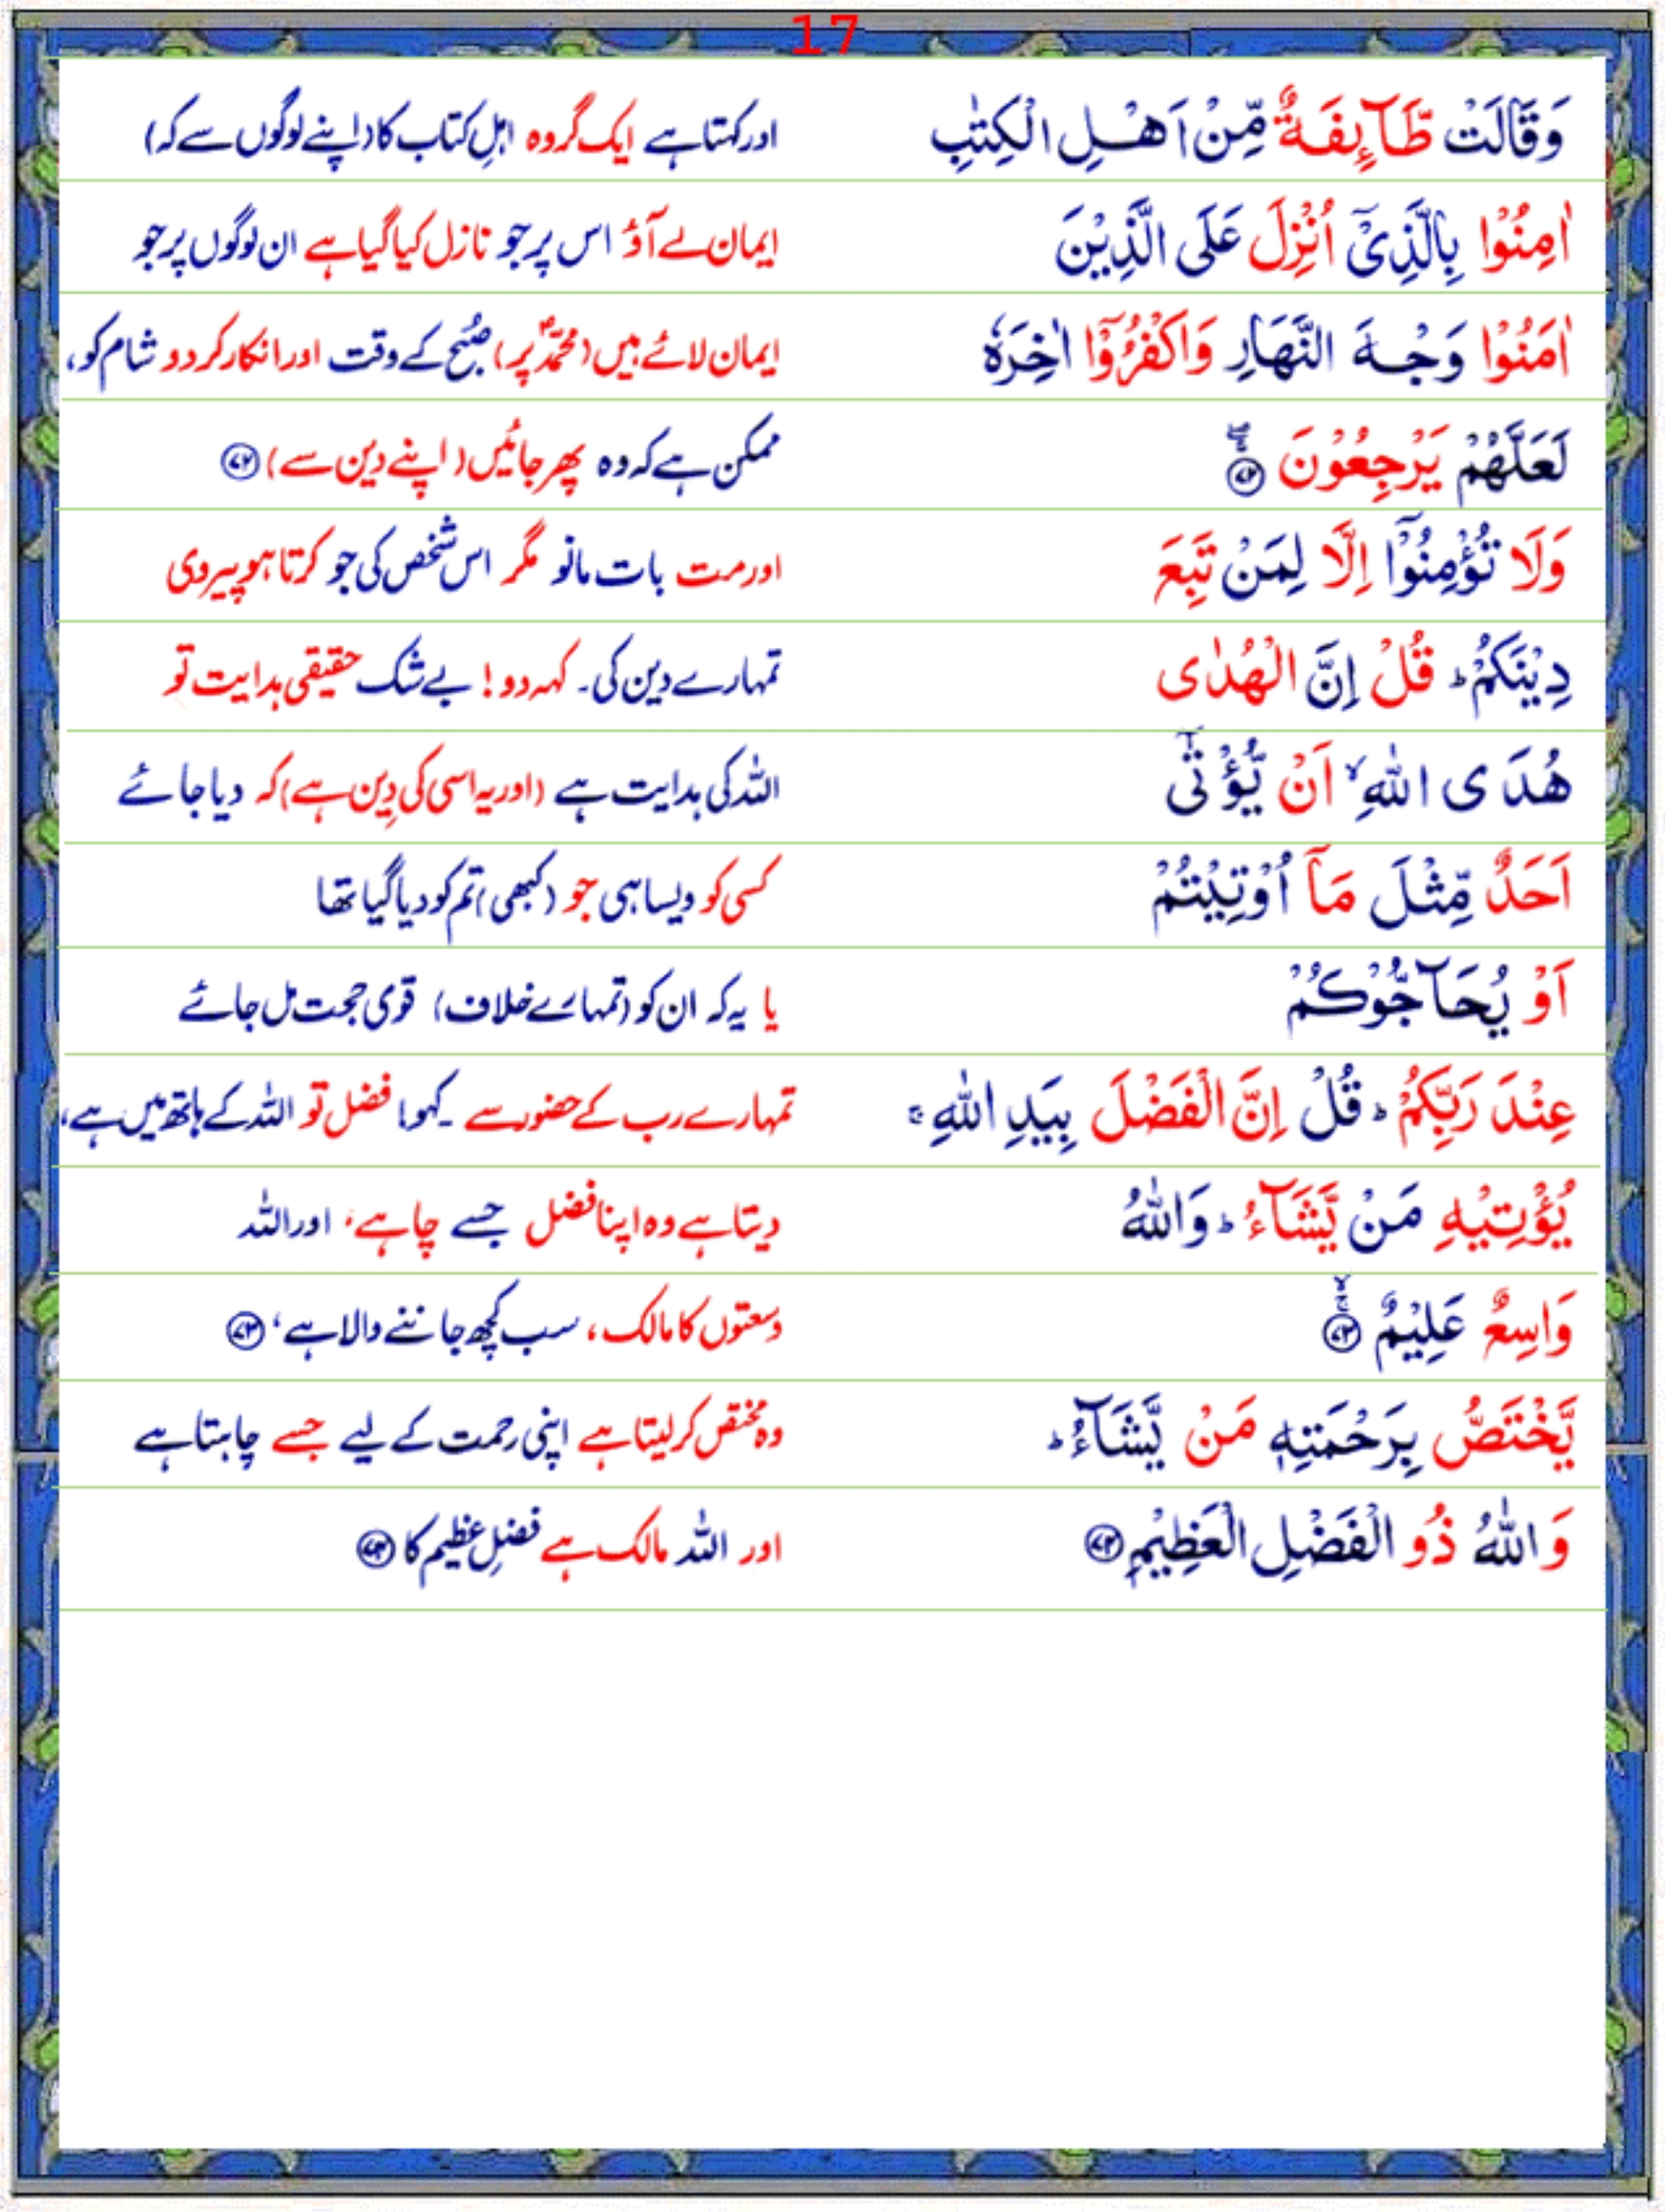 17
وَقَالَتْ طَّآئِفَةٌ مِّنْ اَهْلِ الْكِتٰبِ اور کہتا ہے ایک گروہ اہلِ کتاب کا (اپنے لوگوں سے کہ)
اٰمِنُوْا بِالَّذِیْۤ اُنْزِلَ عَلَی الَّذِیْنَ ایمان لے آؤ اس پر جو نازل کیا گیا ہے ان لوگوں پر جو
اٰمَنُوْا وَجْهَ النَّهَارِ وَاكْفُرُوْۤا اٰخِرَهٗ ایمان لائے ہیں (محمدؐ پر) صبح کے وقت اور انکار کردو شام کو،
لَعَلَّهُمْ یَرْجِعُوْنَ ۚۖ ﴿۷۲﴾ ممکن ہے کہ وہ پھر جائیں (اپنے دین سے) ﴿۷۲﴾
وَلَا تُؤْمِنُوْۤا اِلَّا لِمَنْ تَبِعَ اور مت بات مانو مگر اس شخص کی جو کرتا ہو پیروی
دِیْنَكُمْ ؕ قُلْ اِنَّ الْهُدٰی تمہارے دین کی۔ کہہ دو! بے شک حقیقی ہدایت تو
هُدَی اللّٰهِ ۙ اَنْ یُّؤْتٰۤی اللہ کی ہدایت ہے (اور یہ اسی کی دین ہے) کہ دیا جائے
اَحَدٌ مِّثْلَ مَاۤ اُوْتِیْتُمْ کسی کو ویسا ہی جو (کبھی) تم کو دیا گیا تھا
اَوْ یُحَآجُّوْكُمْ یا یہ کہ ان کو (تمہارے خلاف) قوی حجت مل جائے
عِنْدَ رَبِّكُمْ ؕ قُلْ اِنَّ الْفَضْلَ بِیَدِ اللّٰهِ ۚ تمہارے رب کے حضور سے ۔ کہو! فضل تو اللہ کے ہاتھ میں ہے،
یُؤْتِیْهِ مَنْ یَّشَآءُ ؕ وَاللّٰهُ دیتا ہے وہ اپنا فضل جسے چاہے، اور اللہ
وَاسِعٌ عَلِیْمٌ ۚۙ ﴿۷۳﴾ وسعتوں کا مالک، سب کچھ جاننے والا ہے، ﴿۷۳﴾
یَّخْتَصُّ بِرَحْمَتِهٖ مَنْ یَّشَآءُ ؕ وہ مختص کرلیتا ہے اپنی رحمت کے لیے جسے چاہتا ہے
وَاللّٰهُ ذُو الْفَضْلِ الْعَظِیْمِ ﴿۷۴﴾ اور اللہ مالک ہے فضلِ عظیم کا ﴿۷۴﴾